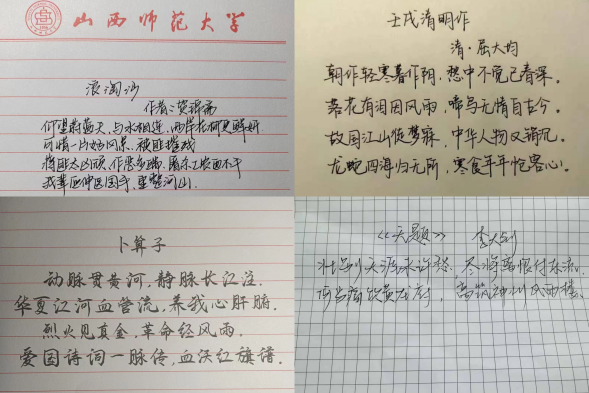 山西师范大学
浪淘沙
作者：
何望蔚蓝天，与水相连，两岸花柳更鲜妍
可惜一片好风景，被匪摧残
蒋匪太凶顽，作恶多端，屠杀工农血不干
我辈应伸医国手，重整河山.
壬戌清明作
清·屈大均
朝作轻寒暮作阴，愁中不觉已春深。
落花有泪因风雨，啼鸟无情自古今。
故国江山徒梦寐，中华人物又销沉。
龙蛇四海归无所，寒食年年怆客心！
卜算子
动脉贯黄河，静脉长江注.
华夏江河血管流，养我心肝腑.
烈火见真金，革命经风雨.
爱国诗词一脉传，血沃红旗谱.
《无题》 李大钊
壮别天涯未许愁，尽将离恨付东流。
何当痛饮黄龙府，高筑神州风雨楼。